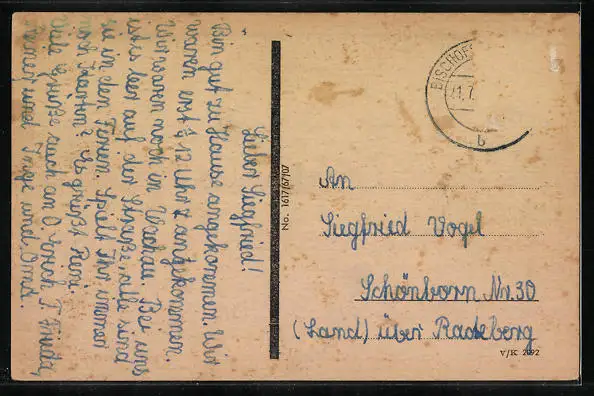 Lieber Siegfried!
Bin gut zu Hause angekommen. Wir
waren erst ½ 12 Uhr angekommen.
Wir waren noch in Wachau. Bei uns
ists leer auf der Straße, alle sind
sie in den Ferien. Spielt Ihr immer
noch Karten? Es grüßt
Viele Grüße auch an O. T.
und Inge und Oma.
No. 1617/67/07
BISCHOFS
21.7.
b
An
Siegfried Vogel
Schönborn Nr. 30
(Land) über Radeberg
V/K 2092